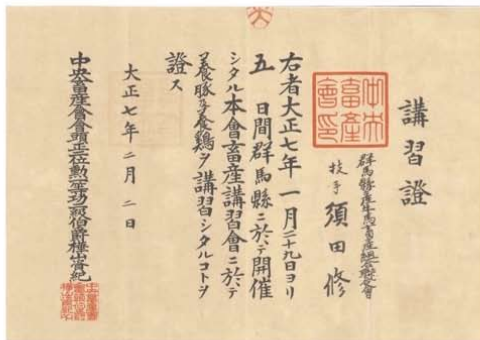 講習證
群馬縣産牛馬畜産組合聯合會
技手 須田修
右者大正七年一月二十九日ヨリ
五日間群馬縣ニ於テ開催
シタル本會畜産講習會ニ於テ
養豚及養鶏ヲ講習シタルコトヲ
證ス
大正七年二月二日
中央畜産會會頭正二位勲一等功二級伯爵樺山資紀
中央畜産會印